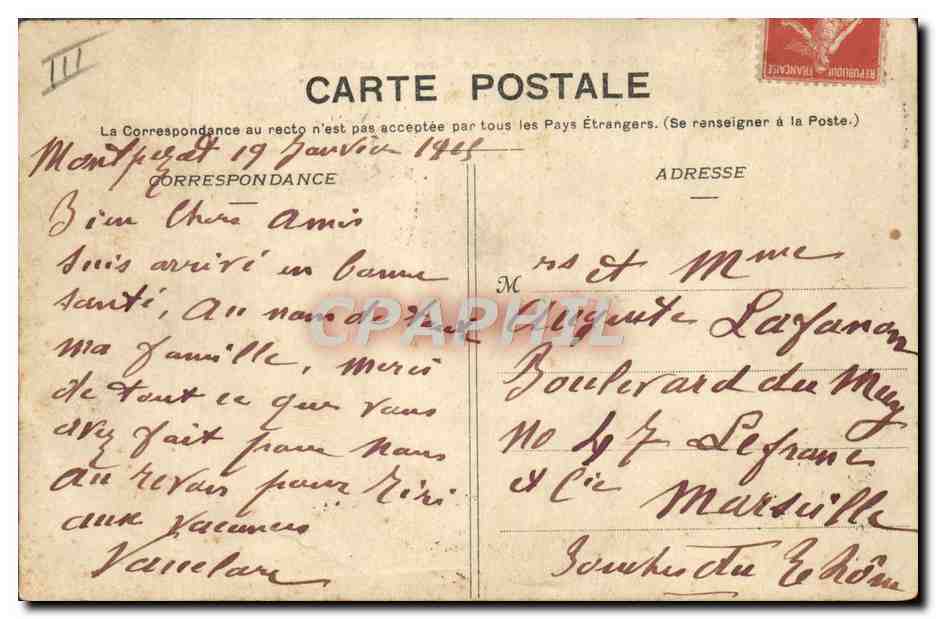 III
REPUBLIQUE FRANÇAISE
CARTE POSTALE
La Correspondance au recto n'est pas acceptée par tous les Pays Étrangers. (Se renseigner à la Poste.)
Montpezat 19 Janvier
CORRESPONDANCE
Bien Chers Amis
suis arrivé en bonne
santé, Au nom de toute
ma famille, merci
de tout ce que vous
avez fait pour nous
au revoir pour Riri
aux vacances
ADRESSE
Mrs et Mme
Auguste Lafanon
Boulevard du Muy
No 47 Lefranc
et Cie
Marseille
Bouches du Rhône
CPAPHIL